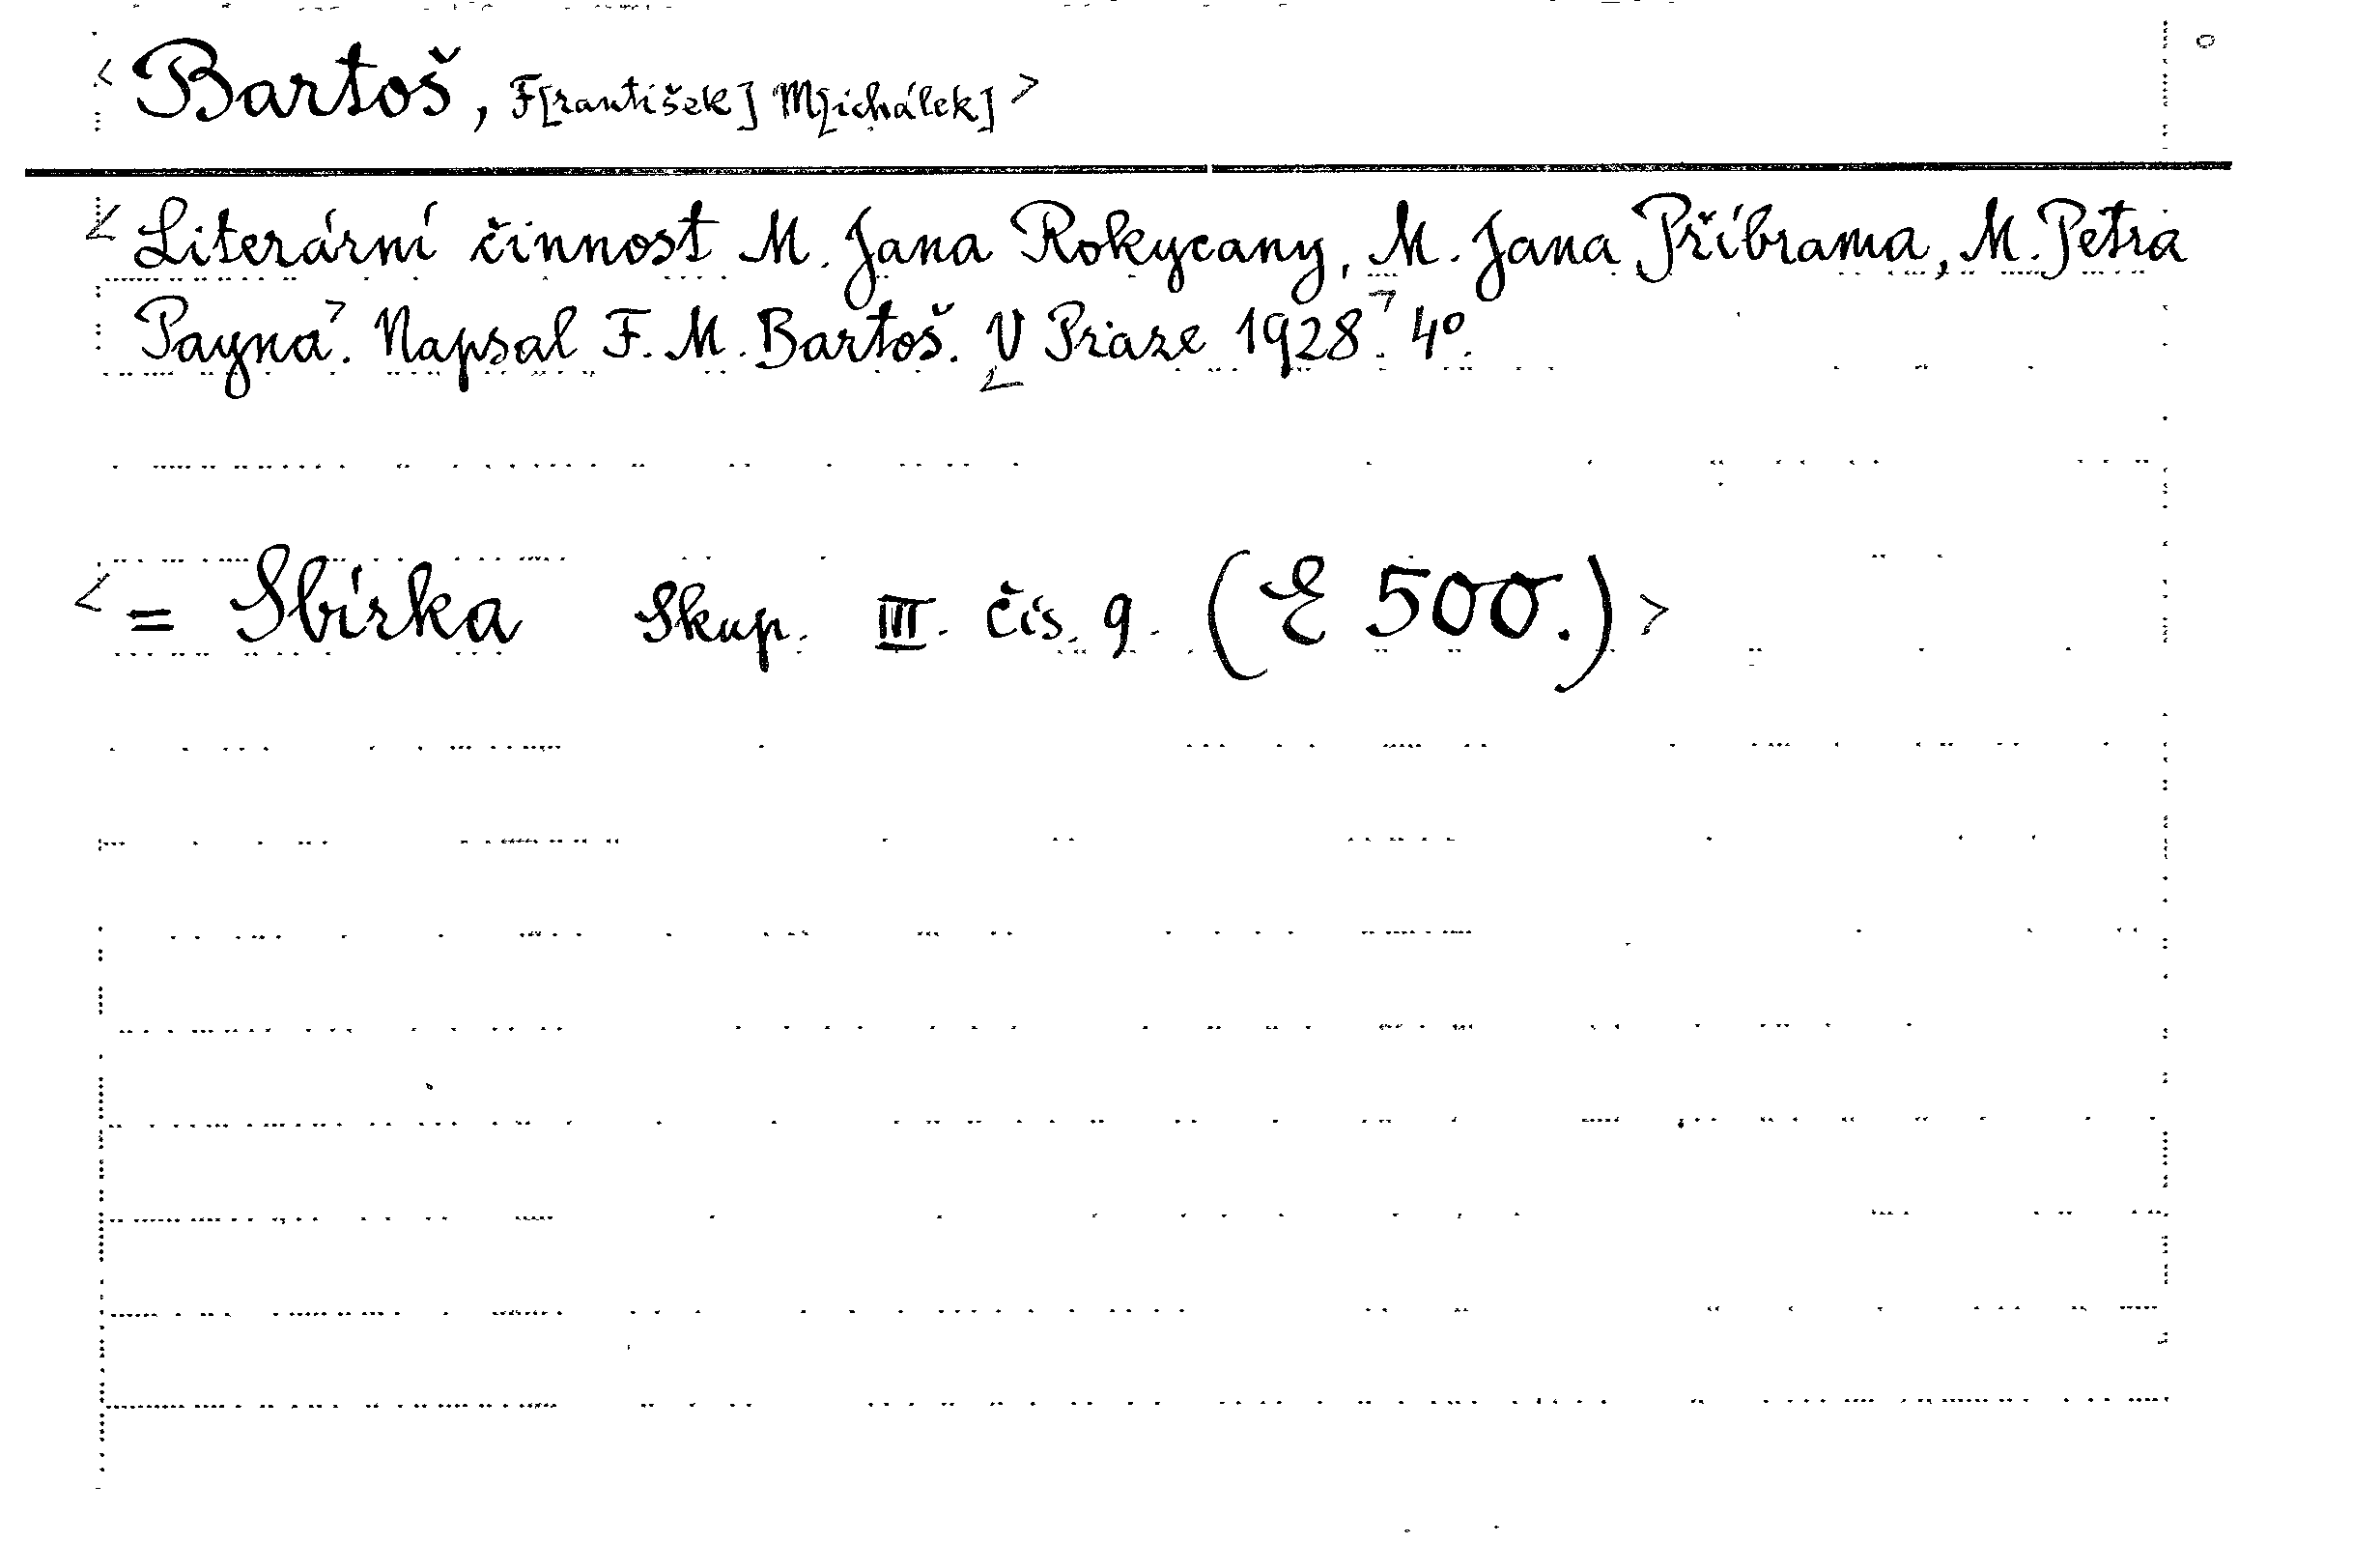 <Bartoš, F[rantišek] M[ichálek]>
<Literární činnost M. Jana Rokycany, M. Jana Příbrama, M. Petra
Payna>. Napsal F. M. Bartoš. <V Praze 1928>. 4°.
<= Sbírka Skup. III. čís. 9. (E 500.)>